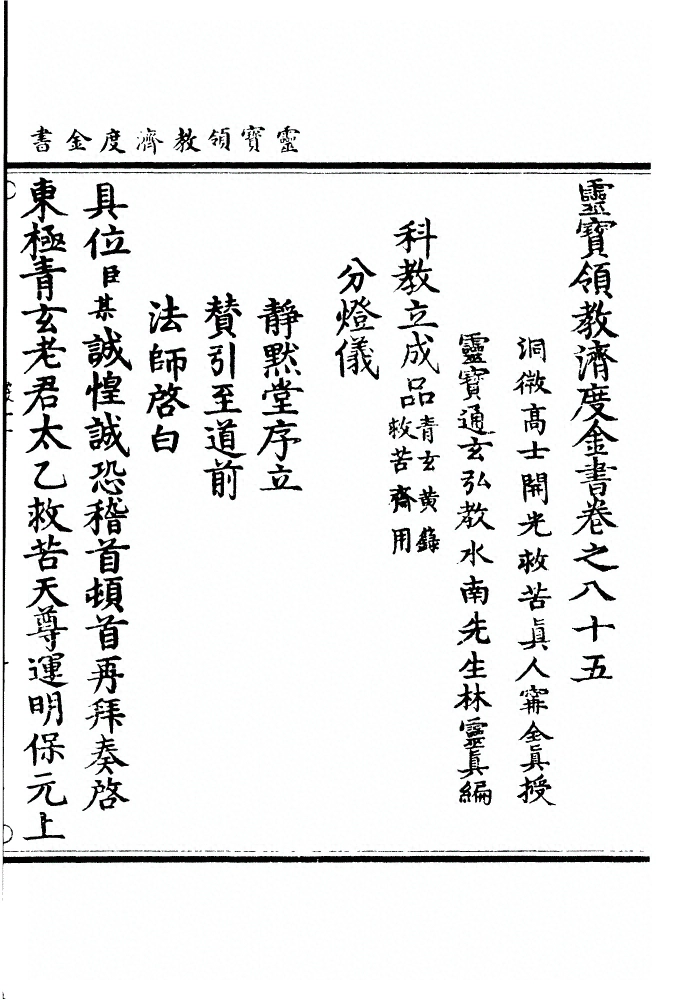 靈寶領教濟度金書
靈寶領教濟度金書卷之八十五
洞微高士開光救苦眞人甯全眞授
靈寶通玄弘教水南先生林靈眞編
科教立成品青玄黄籙救苦齋用
分燈儀
靜默堂序立
賛引至道前
法師啓白
具位臣某誠惶誠恐稽首頓首再拜奏啓
東極青玄老君太乙救苦天尊運明保元上